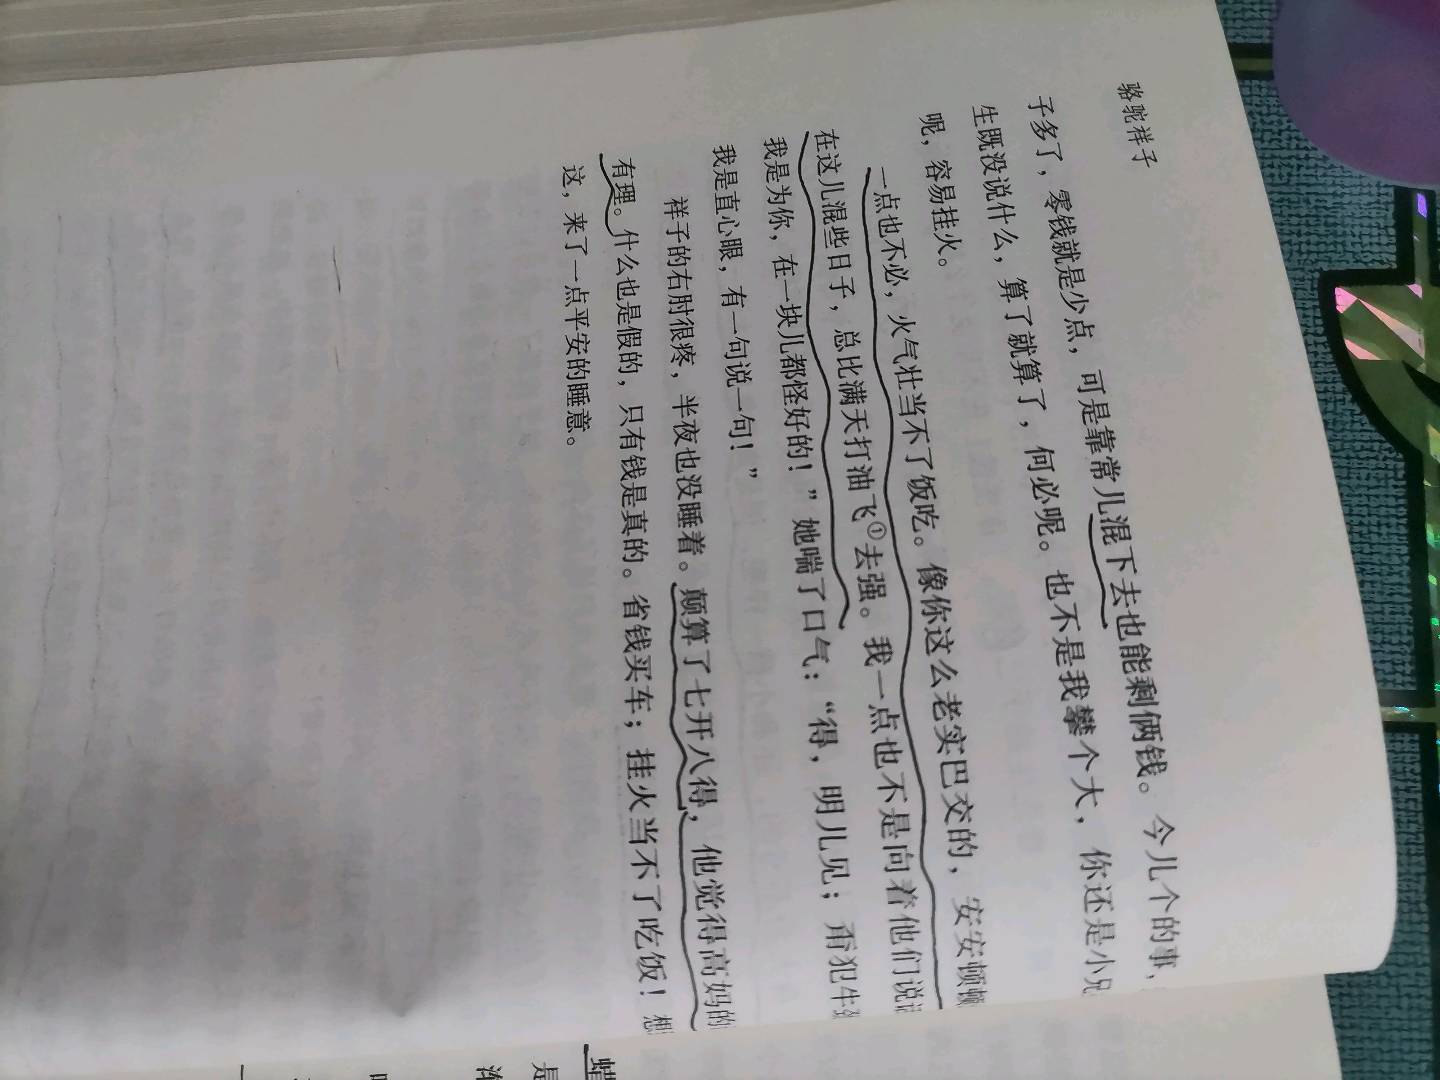 骆驼祥子
子多了，零钱就是少点，可是靠常儿混下去也能剩俩钱。今儿个的事，
生既没说什么，算了就算了，何必呢。也不是我攀个大，你还是小兄
呢，容易挂火。
一点也不必，火气壮当不了饭吃。像你这么老实巴交的，安安顿顿
在这儿混些日子，总比满天打油飞①去强。我一点也不是向着他们说
我是为你，在一块儿都怪好的！”她喘了口气：“得，明儿见；甭犯牛
我是直心眼，有一句说一句！”
祥子的右肘很疼，半夜也没睡着。颠算了七开八得，他觉得高妈的
有理。什么也是假的，只有钱是真的。省钱买车；挂火当不了吃饭！想
这，来了一点平安的睡意。
蜡
是